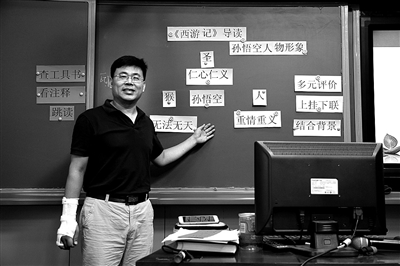 《西游记》导读
孙悟空人物形象
圣
仁心仁义
猴
孙悟空
人
无法无天
重情重义
查工具书
看注释
跳读
多元评价
上挂下联
结合背景